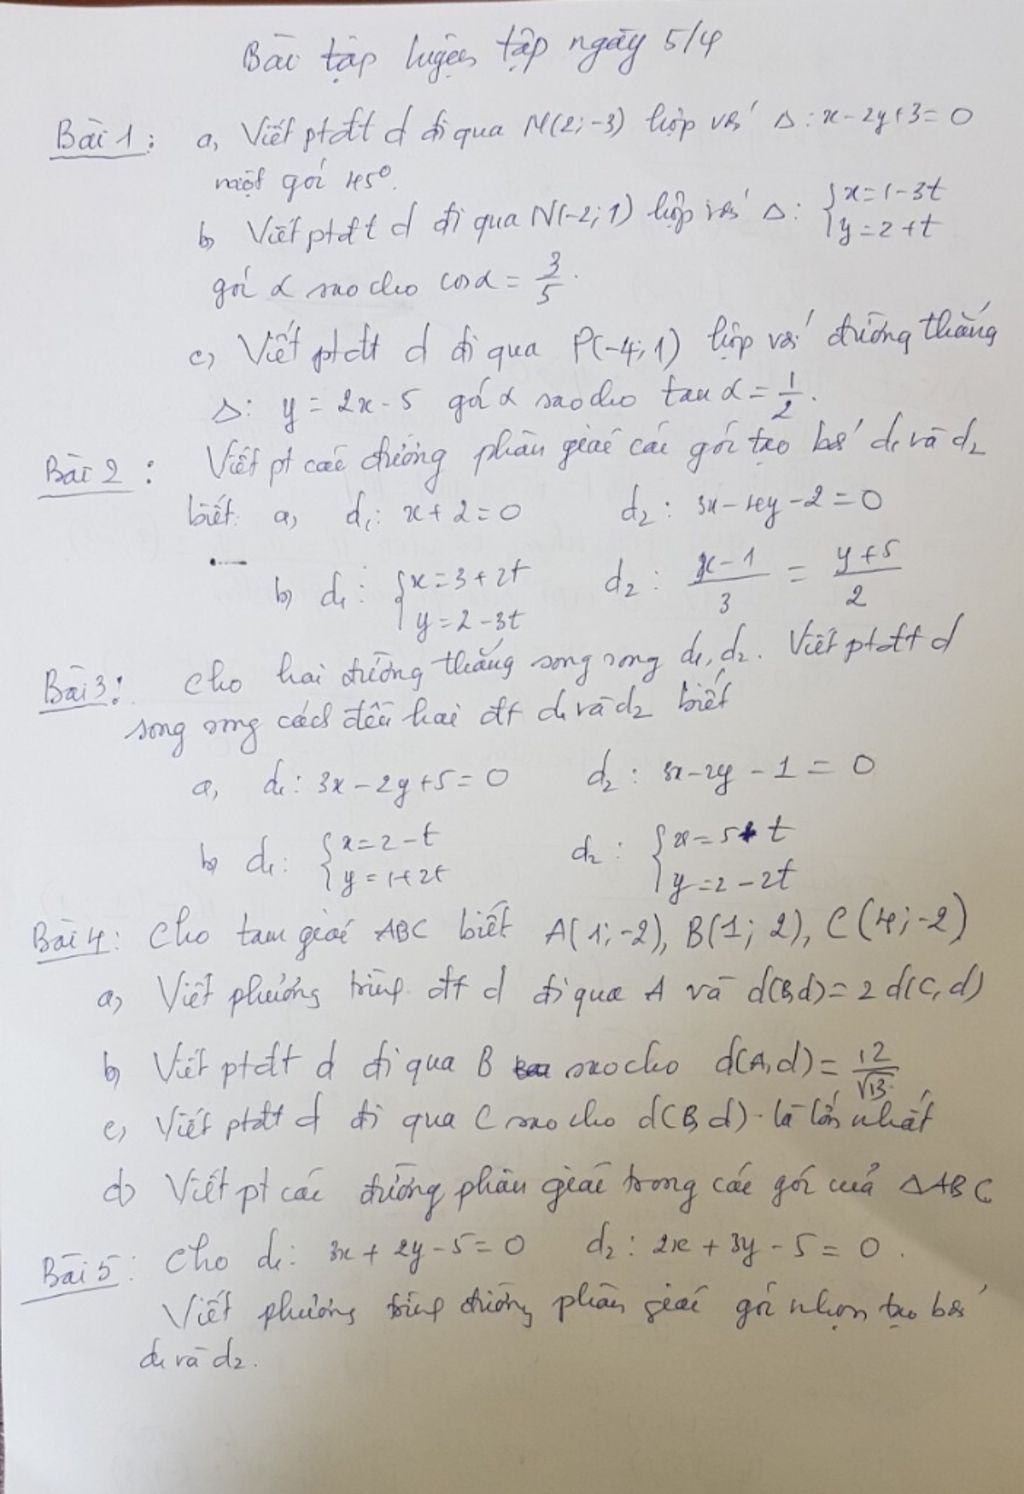 Bài tập luyện tập ngày 5/4
Bài 1: a, Viết ptđt d đi qua M(2; -3) hợp với Δ: x - 2y + 3 = 0
một góc 45°.
b, Viết ptđt d đi qua N(-2; 1) hợp với Δ: { x = 1 - 3t
y = 2 + t
góc α sao cho cos α = 3/5.
c, Viết ptđt d đi qua P(-4; 1) hợp với đường thẳng
Δ: y = 2x - 5 góc α sao cho tan α = 1/2.
Bài 2: Viết pt các đường phân giác các góc tạo bởi d₁ và d₂
biết: a, d₁: x + 2 = 0 d₂: 3x - 4y - 2 = 0
b, d₁: { x = 3 + 2t d₂: (x - 1)/3 = (y + 5)/2
y = 2 - 3t
Bài 3: Cho hai đường thẳng song song d₁, d₂. Viết ptđt d
song song cách đều hai đt d₁ và d₂ biết
a, d₁: 3x - 2y + 5 = 0 d₂: 3x - 2y - 1 = 0
b, d₁: { x = 2 - t d₂: { x = 5 + t
y = 1 + 2t y = 2 - 2t
Bài 4: Cho tam giác ABC biết A(1; -2), B(1; 2), C(4; -2)
a, Viết phương trình đt d đi qua A và d(B, d) = 2 d(C, d)
b, Viết ptđt d đi qua B sao cho d(A, d) = 12/√13.
c, Viết ptđt d đi qua C sao cho d(B, d) là lớn nhất
d, Viết pt các đường phân giác trong các góc của ΔABC
Bài 5: Cho d₁: 3x + 2y - 5 = 0 d₂: 2x + 3y - 5 = 0.
Viết phương trình đường phân giác góc nhọn tạo bởi
d₁ và d₂.